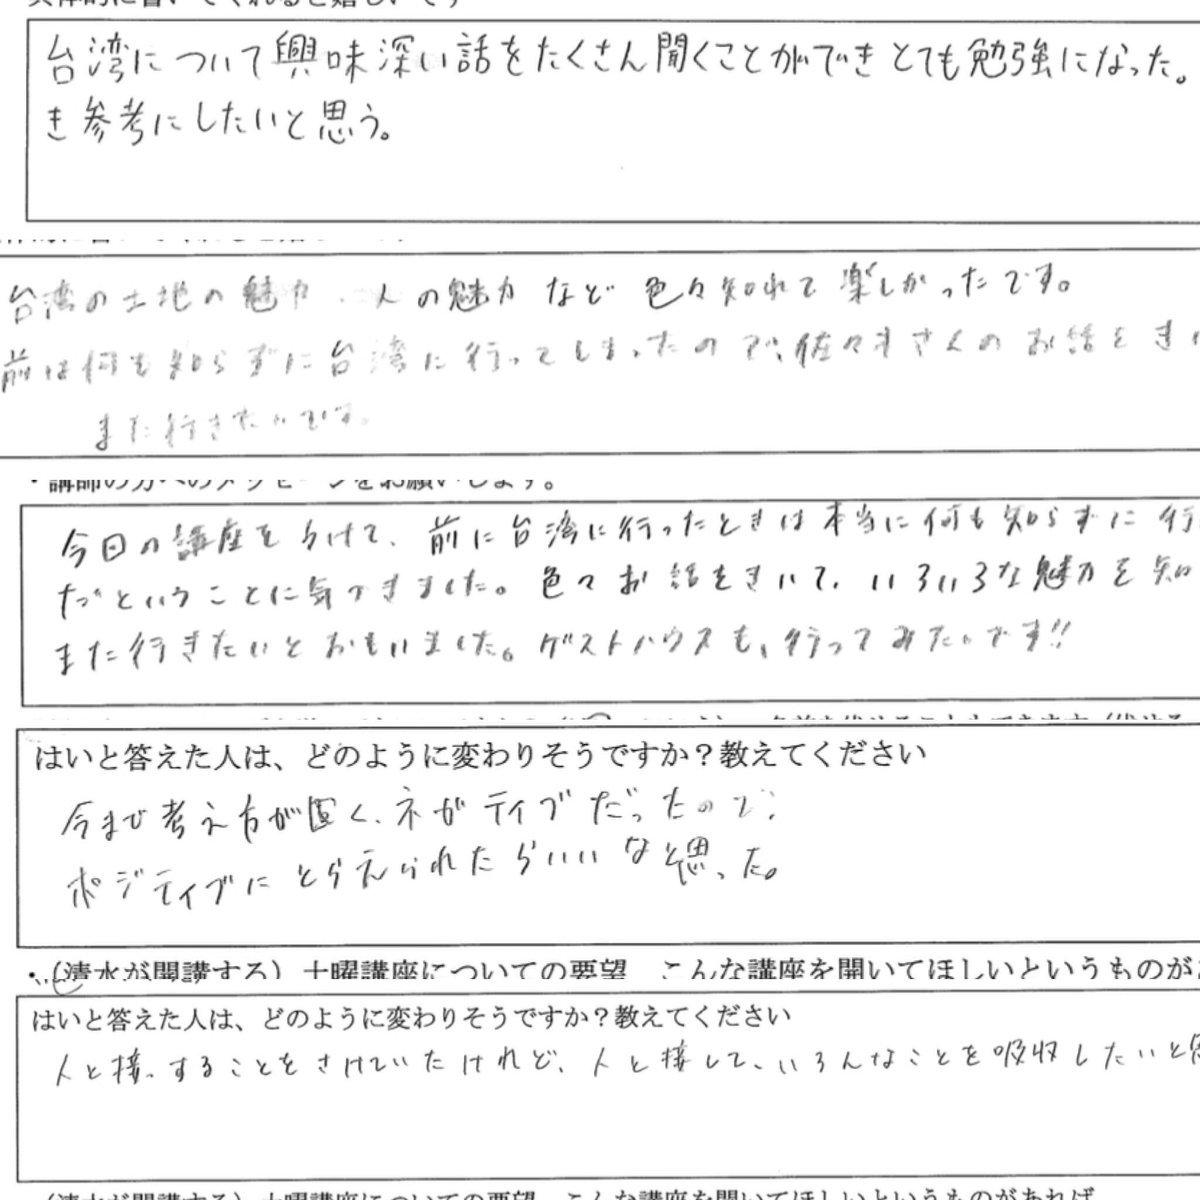 具体的に書いてくれると嬉しいです
台湾について興味深い話をたくさん聞くことができとても勉強になった。
き参考にしたいと思う。
台湾の土地の魅力、人の魅力など色々知れて楽しかったです。
前は何も知らずに台湾に行ってしまったので、佐々木さんのお話をき
また行きたいです。
・講師の方へのメッセージをお願いします。
今回の講座をうけて、前に台湾に行ったときは本当に何も知らずに行
だということに気づきました。色々お話をきいて、いろいろな魅力を知
また行きたいとおもいました。ゲストハウスも、行ってみたいです!!
はいと答えた人は、どのように変わりそうですか？教えてください
今まで考え方が固く、ネガティブだったので、
ポジティブにとらえられたらいいなと思った。
・（清水が開講する）土曜講座についての要望　こんな講座を開いてほしいというものがあ
はいと答えた人は、どのように変わりそうですか？教えてください
人と接することをさけていたけれど、人と接して、いろんなことを吸収したいと思
（清水が開講する）土曜講座についての要望　こんな講座を開いてほしいというものがあれば